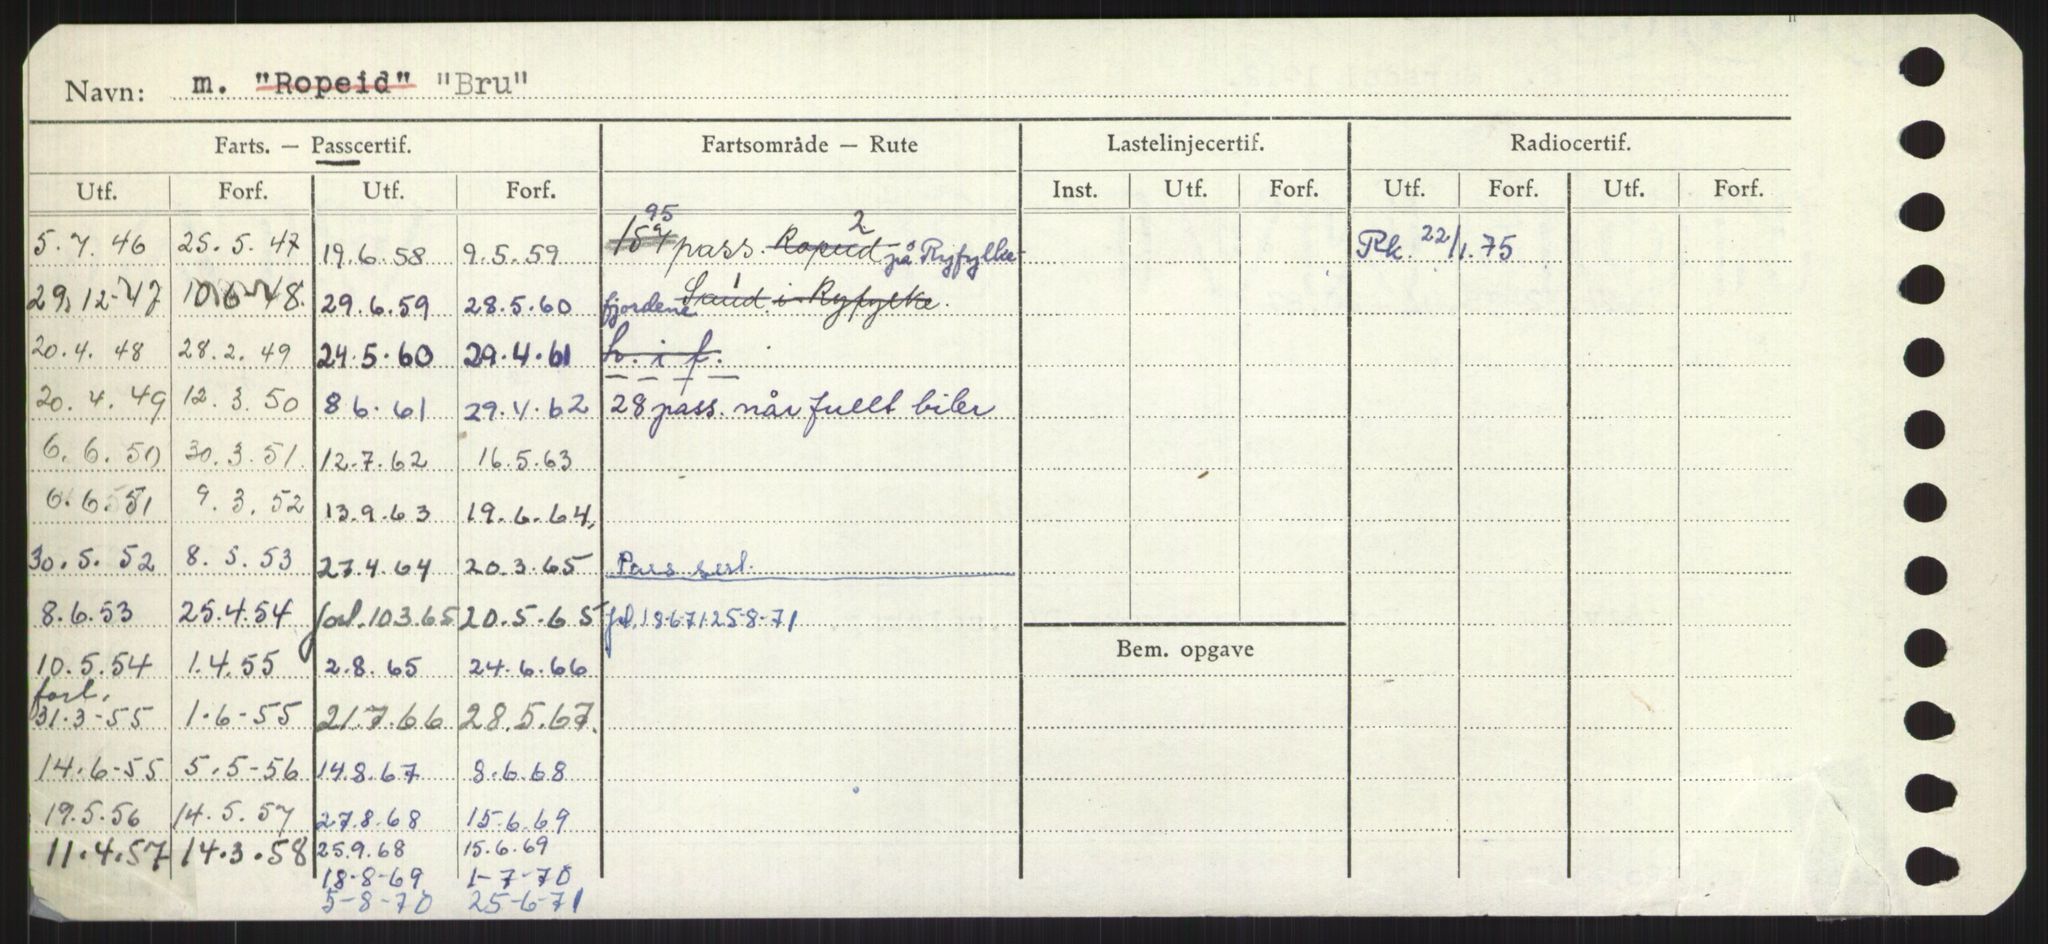 Navn: m. "Ropeid" "Bru"
Farts. — Passcertif. Fartsområde — Rute Lastelinjecertif. Radiocertif.
Utf. Forf. Utf. Forf. Inst. Utf. Forf. Utf. Forf. Utf. Forf.
95 2
5.7.46 25.5.47 19.6.58 9.5.59 pass. Ropeid på Ryfylke- Rk. 22/1.75
29.12-47 10.6-48. 29.6.59 28.5.60 fjordene Sand i Ryfylke.
20.4.48 28.2.49 24.5.60 29.4.61 h. i f.
20.4.49 12.3.50 8.6.61 29.4.62 28 pass. når fullt biler
6.6.50 30.3.51. 12.7.62 16.5.63
6.6.51 9.3.52 13.9.63 19.6.64,
30.5.52 8.5.53 27.4.64 20.3.65 Pass sert.
8.6.53 25.4.54 forl. 10.3.65 20.5.65 fl. 18-6-71 25-8-71
10.5.54 1.4.55 2.8.65 24.6.66 Bem. opgave
forl.
31.3-55 1.6-55 21.7.66 28.5.67.
14.6-55 5.5-56 14.8.67 8.6.68
19.5.56 14.5.57 27.8.68 15.6.69
11.4.57 14.3.58 25.9.68 15.6.69
18-8-69 1-7-70
5-8-70 25-6-71